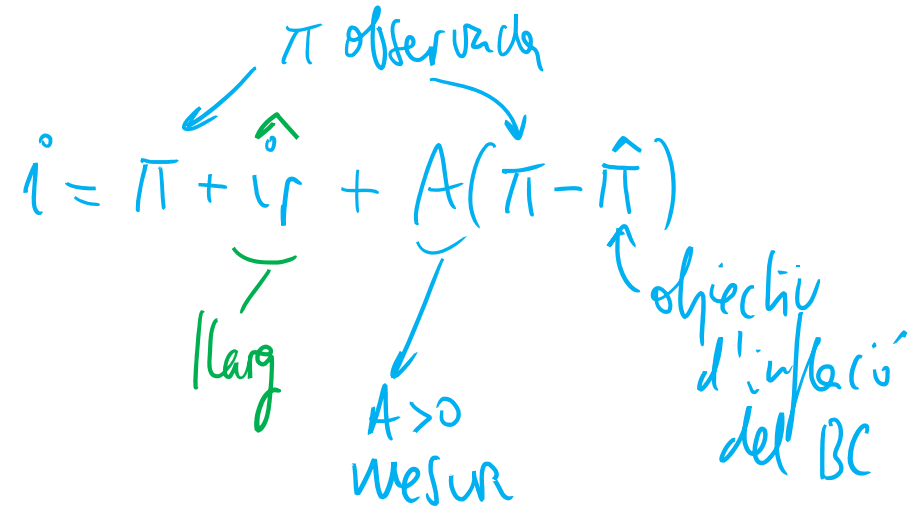 π observada
i = π + îr + A(π - π̂)
llarg
A>0
mesura
objectiu
d'inflació
del BC